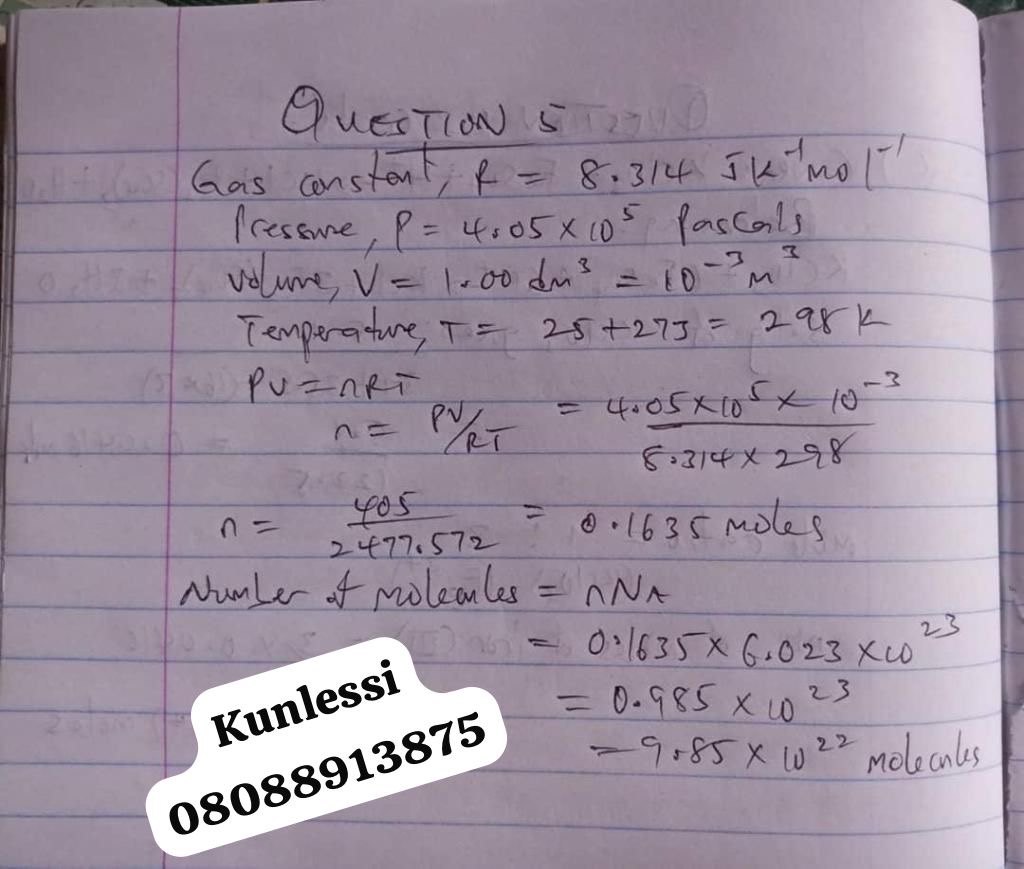 QUESTION 5
Gas constant, R = 8.314 JK⁻¹mol⁻¹
Pressure, P = 4.05 × 10⁵ Pascals
volume, V = 1.00 dm³ = 10⁻³ m³
Temperature, T = 25 + 273 = 298 K
PV = nRT
n = PV/RT = 4.05×10⁵ × 10⁻³ / 8.314 × 298
n = 405 / 2477.572 = 0.1635 moles
Number of molecules = nNA
= 0.1635 × 6.023 ×10²³
= 0.985 × 10²³
= 9.85 × 10²² molecules
Kunlessi
08088913875